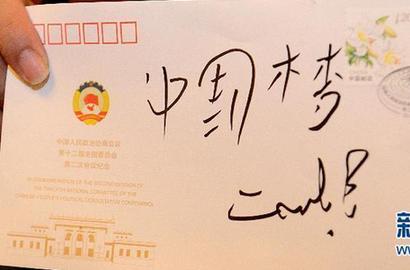 中国梦
中国人民政治协商会议
第十二届全国委员会
第二次会议纪念
IN COMMEMORATION OF THE SECOND SESSION OF
THE TWELFTH NATIONAL COMMITTEE OF THE
CHINESE PEOPLE'S POLITICAL CONSULTATIVE CONFERENCE
新
www